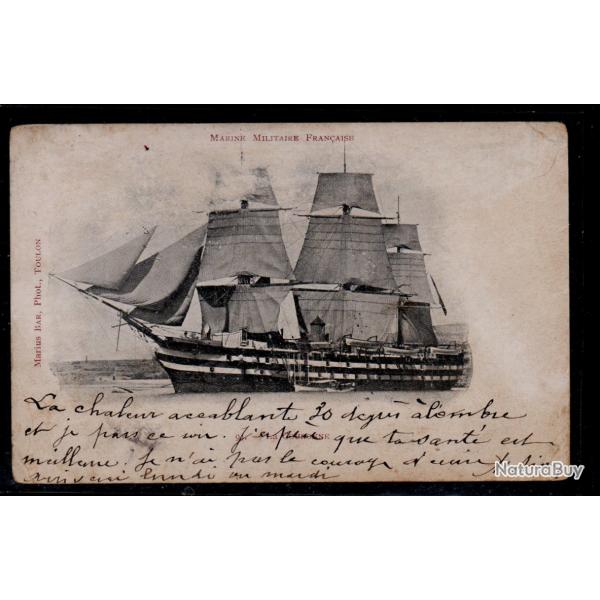 Marine Militaire Française
Marius Bar, Phot., Toulon
La chaleur accablante 30 degrés à l'ombre
et je pars ce soir. J'espère que ta santé est
meilleure. Je n'ai pas le courage d'écrire
lundi ou mardi
NaturaBuy